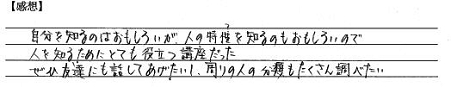 【感想】
自分を知るのはおもしろいが、人の特性を知るのもおもしろいので
人を知るためにとても役立つ講座だった
ぜひ友達にも話してあげたいし、周りの人の分類もたくさん調べたい